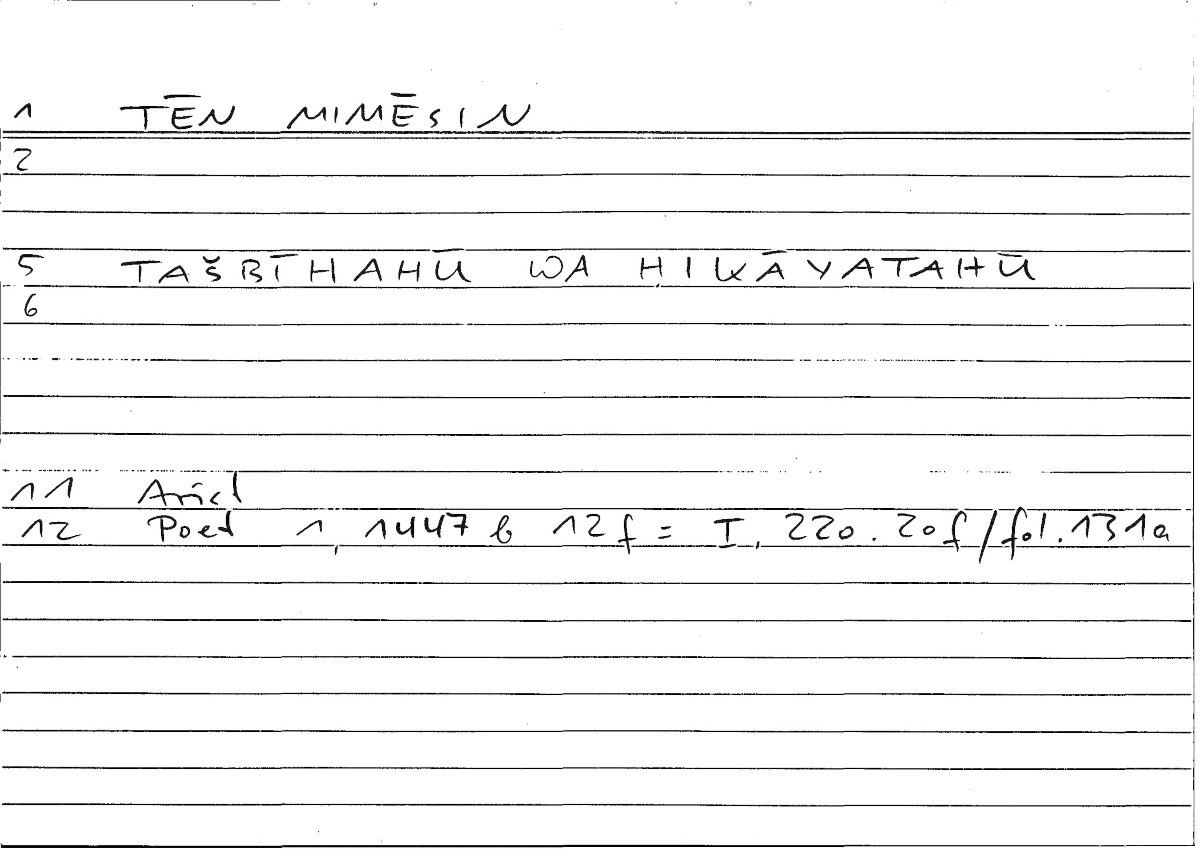 1 TĒN MIMĒSIN
2
5 TAŠBĪHAHŪ WA ḤIKĀYATAHŪ
6
11 Arist
12 Poet 1, 1447 b 12 f = I, 220. 20f / fol. 131a